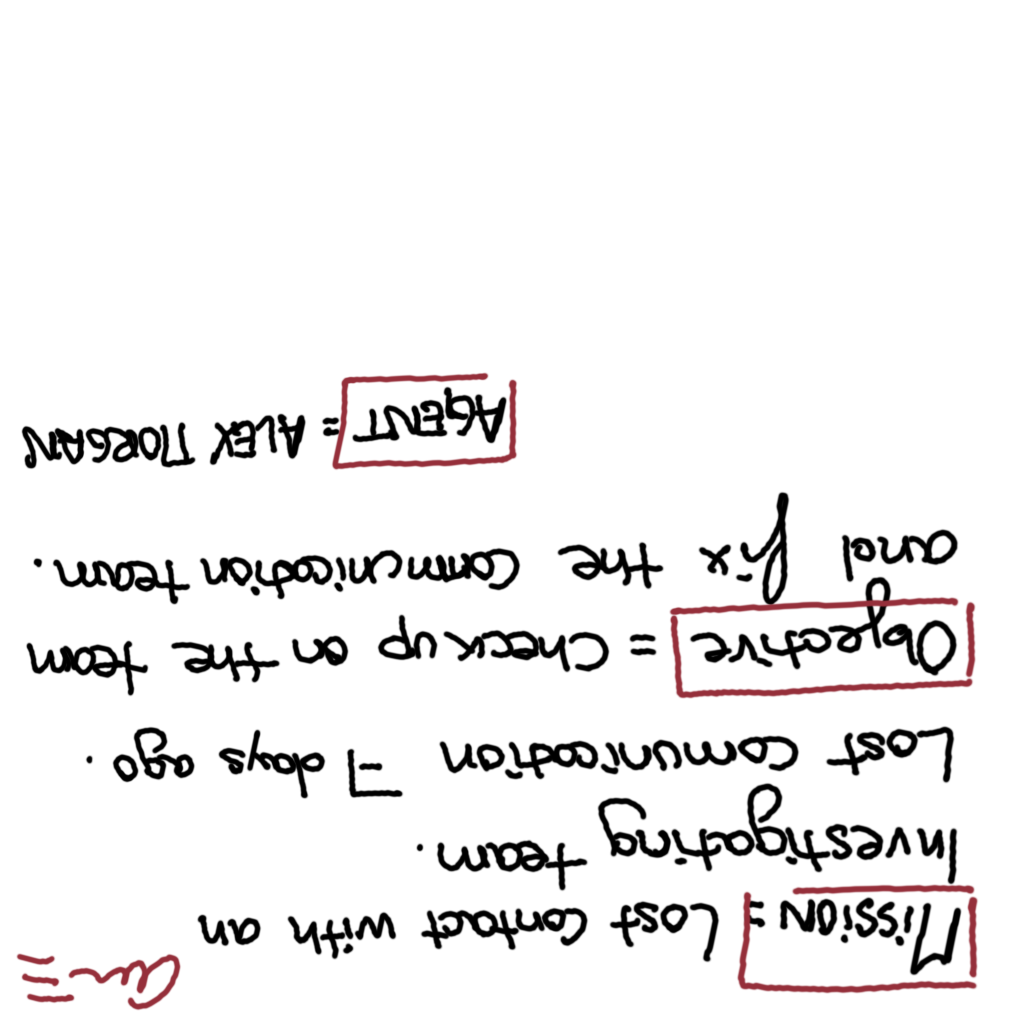 Mission = Lost contact with an
Investigating team.
Lost comunication 7 days ago.
Objective = Checkup on the team
and fix the communication team.
AGENT = ALEX MORGAN